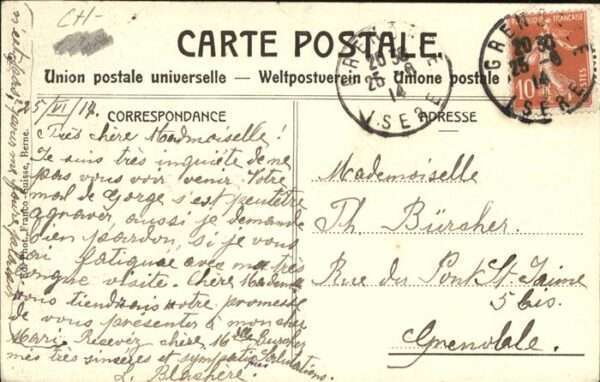 CH-
CARTE POSTALE.
Union postale universelle — Weltpostverein — Unione postale
25/VI/14.
CORRESPONDANCE
Très chère Mademoiselle!
Je suis très inquiéte de ne
pas vous voir venir. Votre
mal de gorge s'est peutêtre
agraver, aussi je demande
bien pardon, si je vous
ai fatiguae avec ma très
longue visite. Chère Madem
vous tiendrais votre promesse
de vous presenter à mon cher
Mari. Recevez chère Mlle Burcher
mes très sinsères et sympatiques Salutations.
L. Blachère.
ADRESSE
Mademoiselle
Th Bürcher.
Rue du Pont St. Jaime
5 bis.
Grenoble.
GRENOBLE
20 30
25 - 6
14
ISERE
GRENOBLE
20 30
25 - 6
14
ISERE
10
POSTES
Phot. Franco-Suisse, Berne.